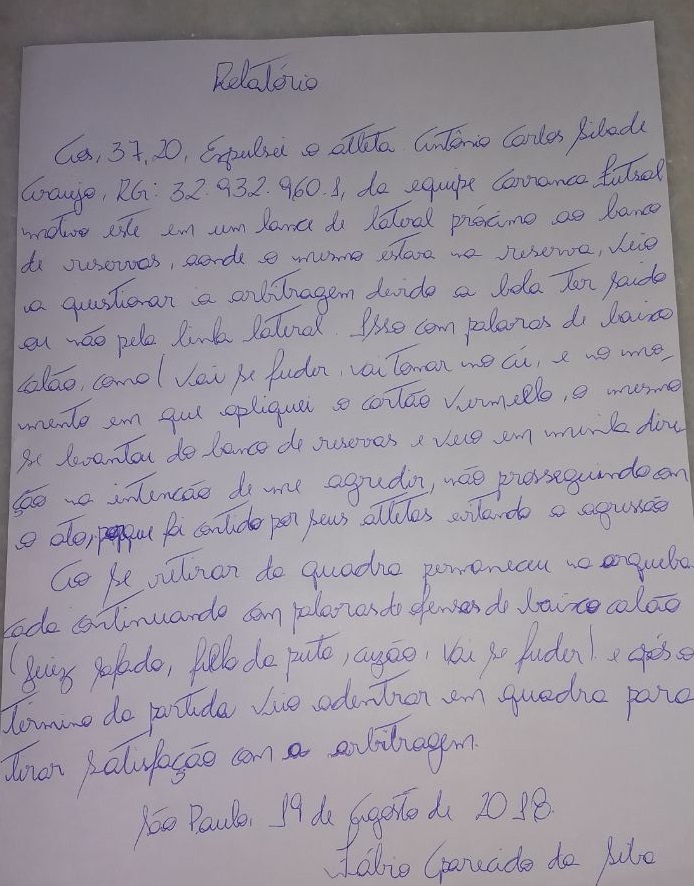 Relatório
Aos, 37,20, Expulsei o atleta Antônio Carlos Silva de
Araujo, RG: 32.932.960.1, da equipe Carranca Futsal
motivo este em um lance de lateral próximo ao banco
de reservas, aonde o mesmo estava na reserva, veio
a questionar a arbitragem devido a bola ter saido
ou não pela linha lateral. Isso com palavras de baixo
calão, como (Vai se fuder, vai tomar no cú, e no mo-
mento em que apliquei o cartão vermelho, o mesmo
se levantou do banco de reservas e veio em minha dire
ção na intenção de me agredir, não prosseguindo com
o ato, porque foi contido por seus atletas evitando a agressão
Ao se retirar da quadra permaneceu na arqueba
cada continuando com palavras de ofensas de baixo calão
(Juiz safado, filho da puta, cuzão, Vai se fuder) e após o
término da partida veio adentrar em quadra para
tirar satisfação com a arbitragem.
São Paulo, 19 de Agosto de 2018.
Fábio Aparecido da Silva